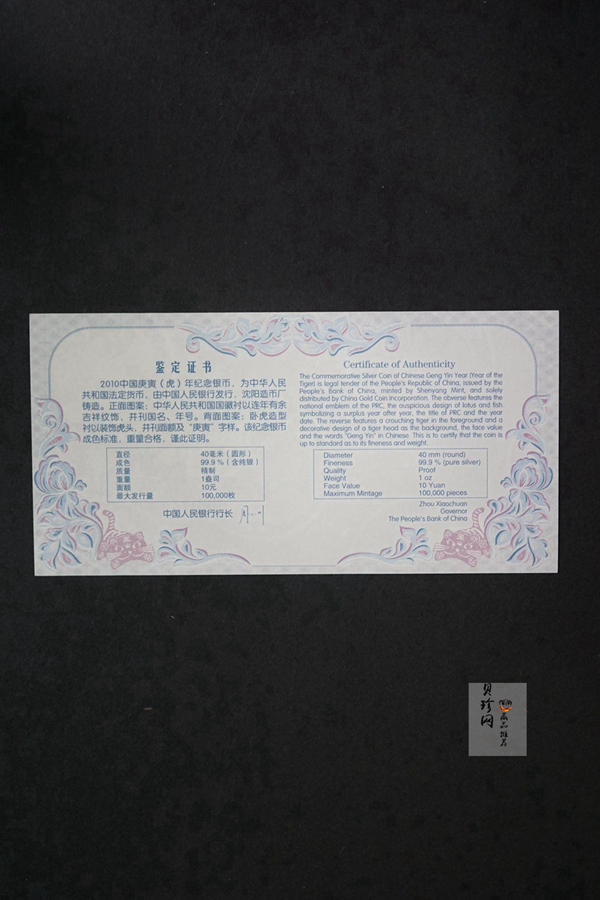 鉴定证书
2010中国庚寅（虎）年纪念银币，为中华人民
共和国法定货币，由中国人民银行发行，沈阳造币厂
铸造。正面图案：中华人民共和国国徽衬以连年有余
吉祥纹饰，并刊国名、年号。背面图案：卧虎造型
衬以装饰虎头，并刊面额及“庚寅”字样。该纪念银币
成色标准，重量合格，谨此证明。
直径 40毫米（圆形）
成色 99.9%（含纯银）
质量 精制
重量 1盎司
面额 10元
最大发行量 100,000枚
中国人民银行行长
Certificate of Authenticity
The Commemorative Silver Coin of Chinese Geng Yin Year (Year of the
Tiger) is legal tender of the People's Republic of China, issued by the
People's Bank of China, minted by Shenyang Mint, and solely
distributed by China Gold Coin Incorporation. The obverse features the
national emblem of the PRC, the auspicious design of lotus and fish
symbolizing a surplus year after year, the title of PRC and the year
date. The reverse features a crouching tiger in the foreground and a
decorative design of a tiger head as the background, the face value
and the words "Geng Yin" in Chinese. This is to certify that the coin is
up to standard as to its fineness and weight.
Diameter 40 mm (round)
Fineness 99.9 % (pure silver)
Quality Proof
Weight 1 oz
Face Value 10 Yuan
Maximum Mintage 100,000 pieces
Zhou Xiaochuan
Governor
The People's Bank of China
贝珍网
藏品推荐